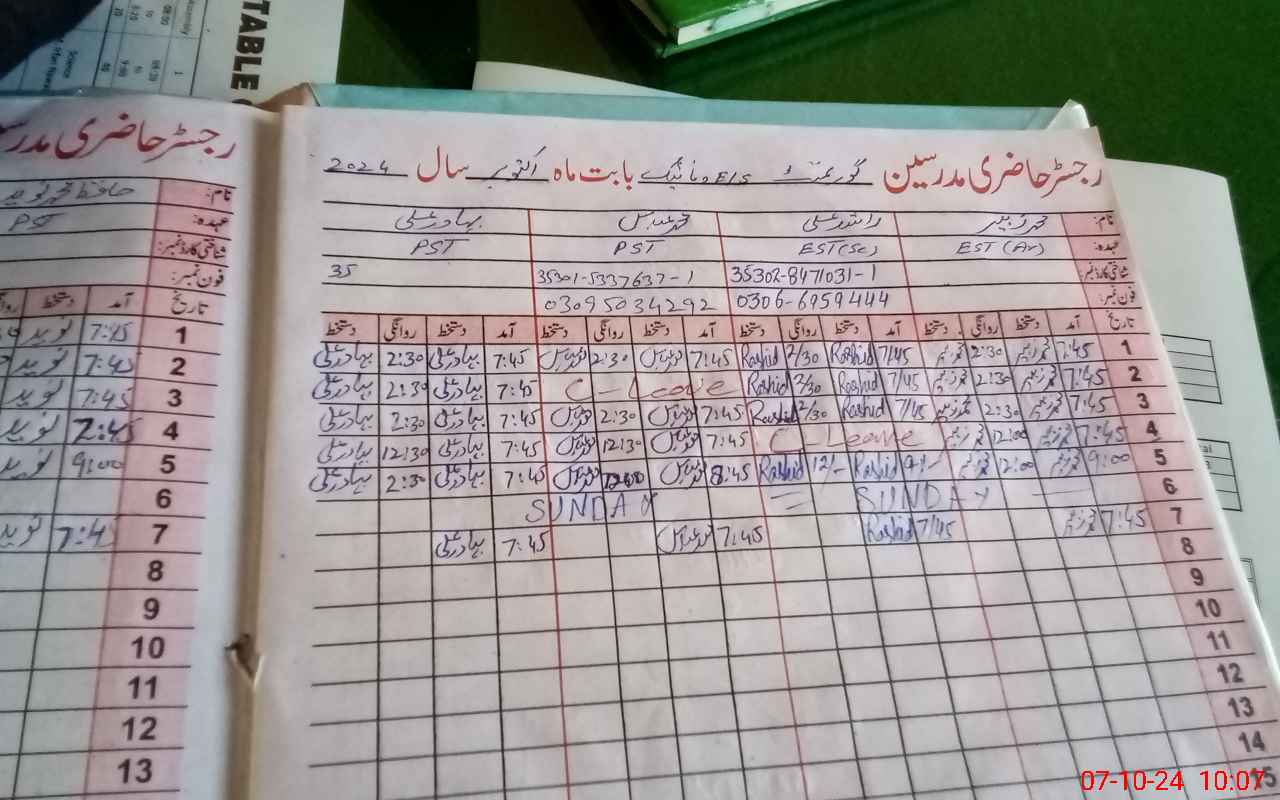 TABLE
رجسٹر حاضری مدرسین گورنمنٹ E/S بابت ماہ اکتوبر سال 2024
نام: محمد زبیر راشد علی محمد عباس بہادر علی
عہدہ: EST (Ar) EST (Sc) PST PST
شناختی کارڈ نمبر: 35302-8471031-1 35301-5337637-1 35
فون نمبر: 0306-6959444 03095034292
تاریخ آمد دستخط روانگی دستخط آمد دستخط روانگی دستخط آمد دستخط روانگی دستخط آمد دستخط روانگی دستخط
1 7:45 محمد زبیر 2:30 محمد زبیر 7/45 Rashid 2/30 Rashid 7:45 محمد عباس 2:30 محمد عباس 7:45 بہادر علی 2:30 بہادر علی
2 7:45 محمد زبیر 2:30 محمد زبیر 7/45 Rashid 2/30 Rashid C-Leave 7:45 بہادر علی 2:30 بہادر علی
3 7:45 محمد زبیر 2:30 محمد زبیر 7/45 Rashid 2/30 Rashid 7:45 محمد عباس 2:30 محمد عباس 7:45 بہادر علی 2:30 بہادر علی
4 7:45 محمد زبیر 12:00 محمد زبیر C-Leave 7:45 محمد عباس 12:30 محمد عباس 7:45 بہادر علی 12:30 بہادر علی
5 9:00 محمد زبیر 12:00 محمد زبیر 9/- Rashid 12/- Rashid 8:45 محمد عباس 12:00 محمد عباس 7:45 بہادر علی 2:30 بہادر علی
6 SUNDAY SUNDAY
7 7:45 محمد زبیر 7/45 Rashid 7:45 محمد عباس 7:45 بہادر علی
8
9
10
11
12
13
14
15
رجسٹر حاضری مدرسین
نام: حافظ محمد نوید
عہدہ: PST
شناختی کارڈ نمبر:
فون نمبر:
تاریخ آمد دستخط
1 7:45 نوید
2 7:45 نوید
3 7:45 نوید
4 7:45 نوید
5 9:00 نوید
6
7 7:45 نوید
8
9
10
11
12
13
07-10-24 10:07